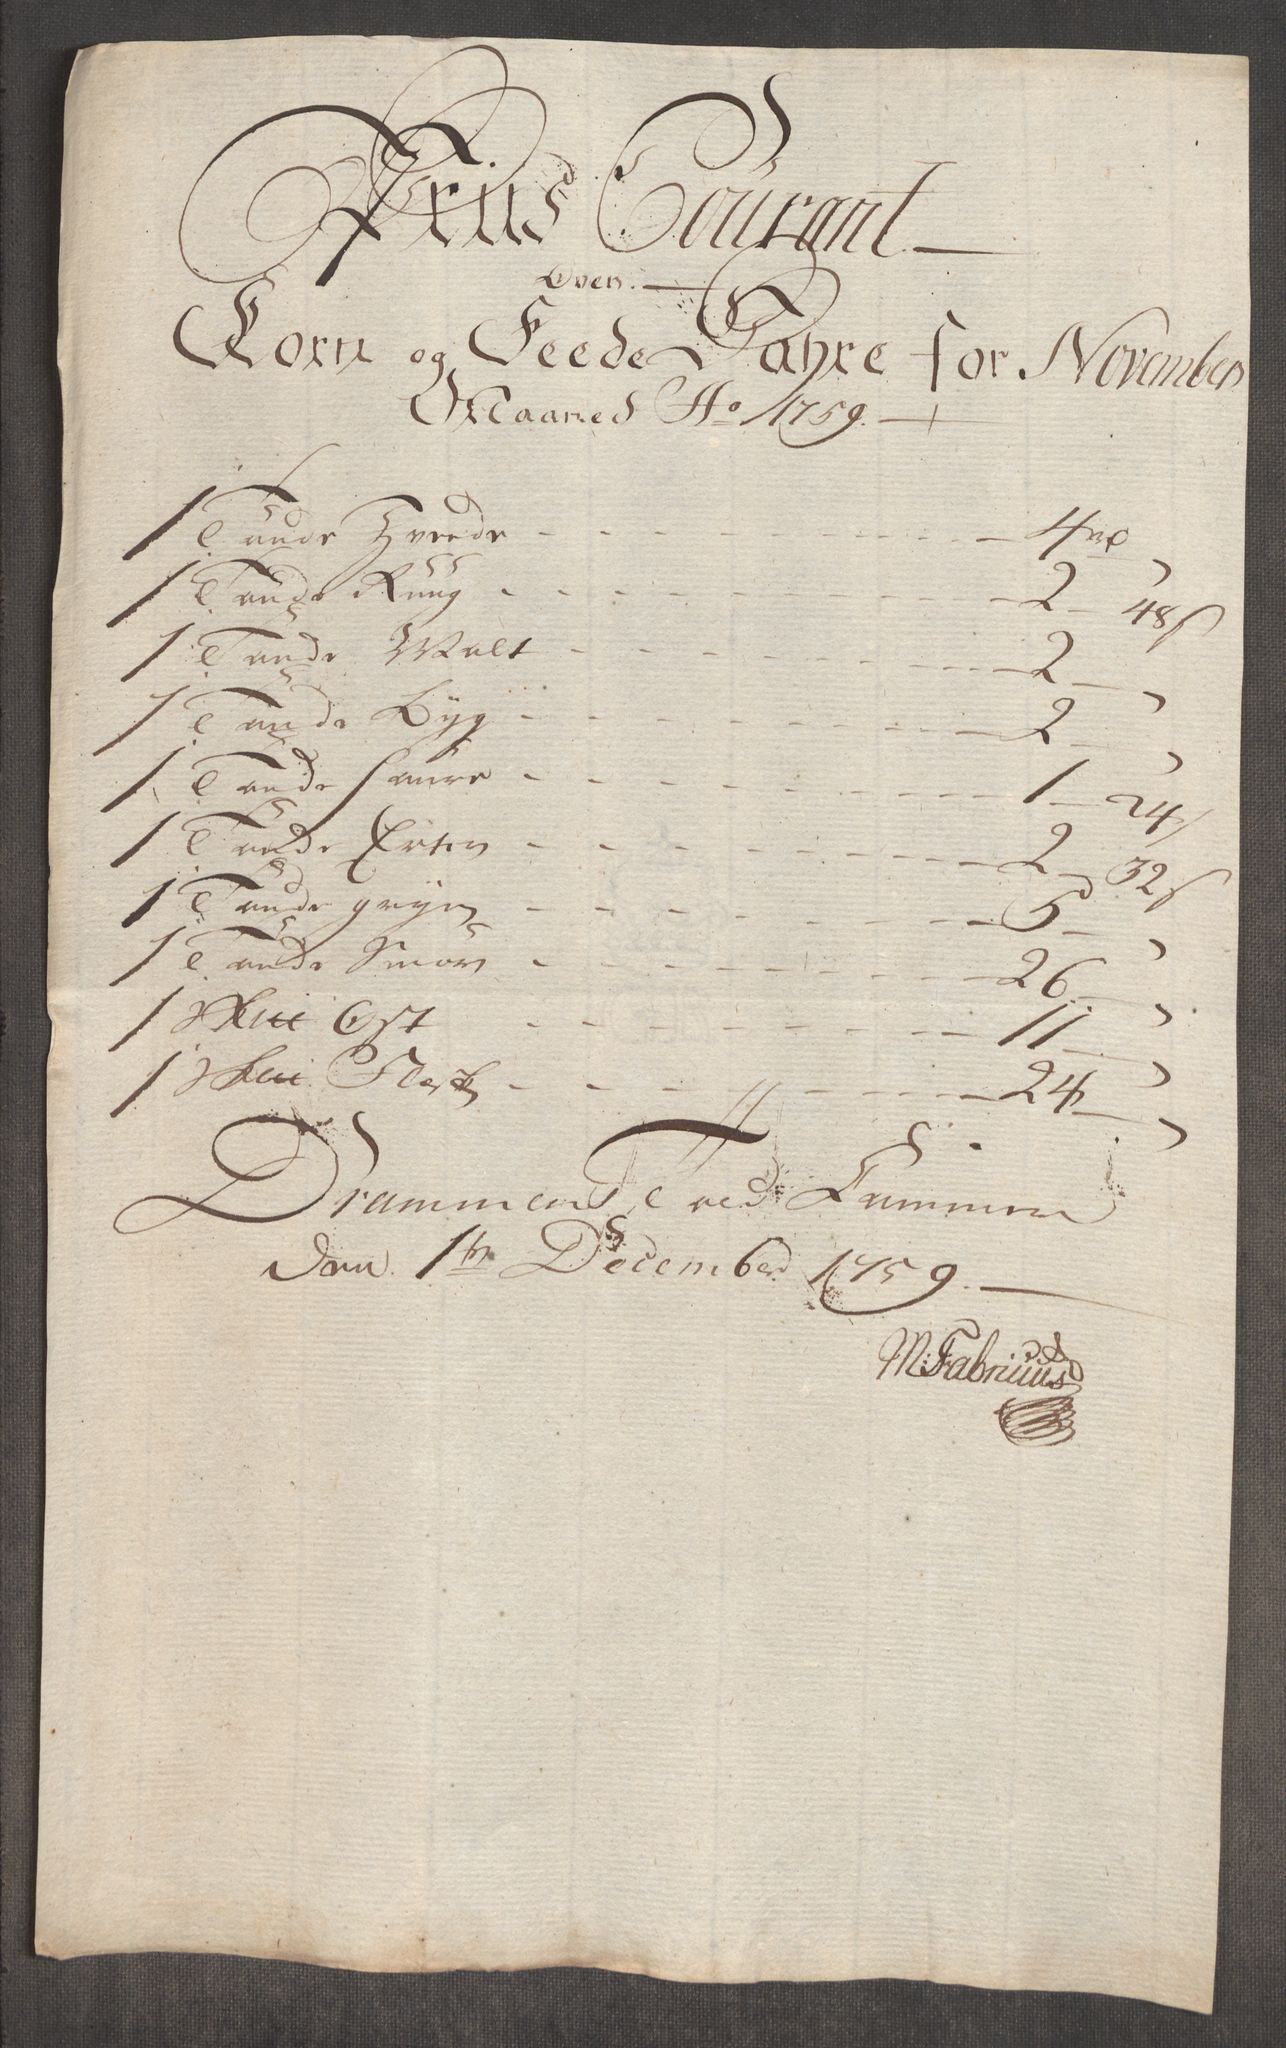 Priis Courant
Over
Korn og Feede Vahre for November
Maaned Ao 1759.
1 Tønde Hvede - - - 4 rd "
1 Tønde Rüug - - - 2 - 48 s
1 Tønde Malt - - - 2 - "
1 Tønde Byg - - - 2 - "
1 Tønde haure - - - 1 - 24 s
1 Tønde Erter - - - 2 - 32 s
1 Tønde gryn - - - 5 - "
1 Tønde Smør - - - 26 - "
1 Ost - - - 11 - "
1 Flesk - - - 24 - "
Drammens
den 1te December 1759.
M: Fabritius